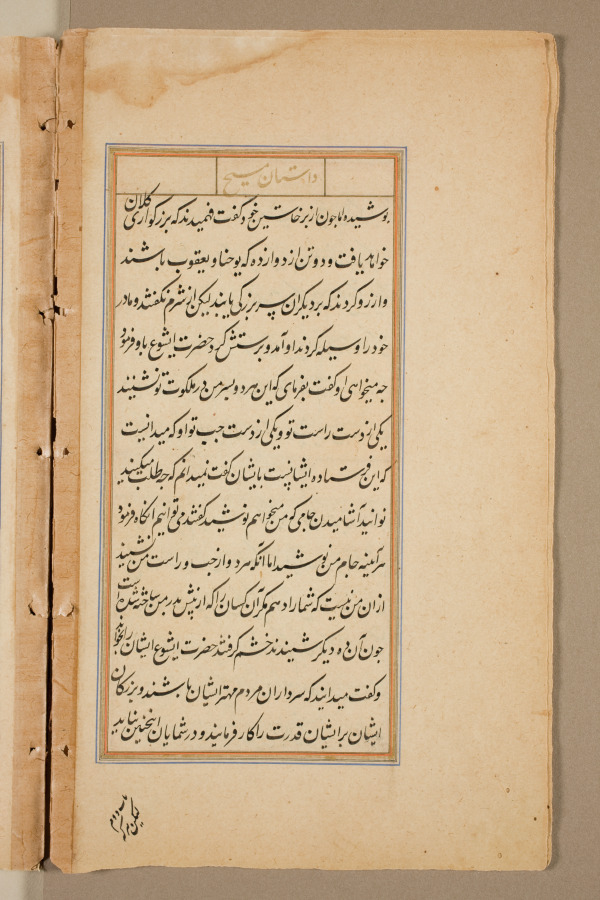 داستان مسیح
پوشیده اما چون از برخاستن خود گفت فهمیدند که بزرگواری کلان
خواهد یافت و دو تن از دوازده که یوحنا و یعقوب باشند
وارزو کردند که بر دیگران سر بزرگی یابند لیکن از شرم نگفتند و مادر
خود را وسیله کردند او آمد و پرستش کرد حضرت ایشوع باو فرمود
چه میخواهی او گفت بفرمای که این هر دو پسر من در ملکوت تو نشینند
یکی از دست راست تو و یکی از دست چپ تو او که میدانست
که این فرستاده ایشانست بایشان گفت نمیدانم که چه طلب میکنید
توانید آشامیدن جامی که من میخواهم نوشید گفتند می توانیم آنگاه فرمود
هر آینه جام من نوشید اما آنکه هر دو از چپ و راست من نشینید
از ان من نیست که شما را دهم مگر آن کسان را که از پیش پدر من ساخته شده است
چون آن ده دیگر شنیدند خشم گرفتند حضرت ایشوع ایشان را بخواند
و گفت میدانید که سرداران مردم مهتر ایشان باشند و بزرگان
ایشان بر ایشان قدرت را کار فرمایند و در شمایان اینچنین نباید
لیکن هر که